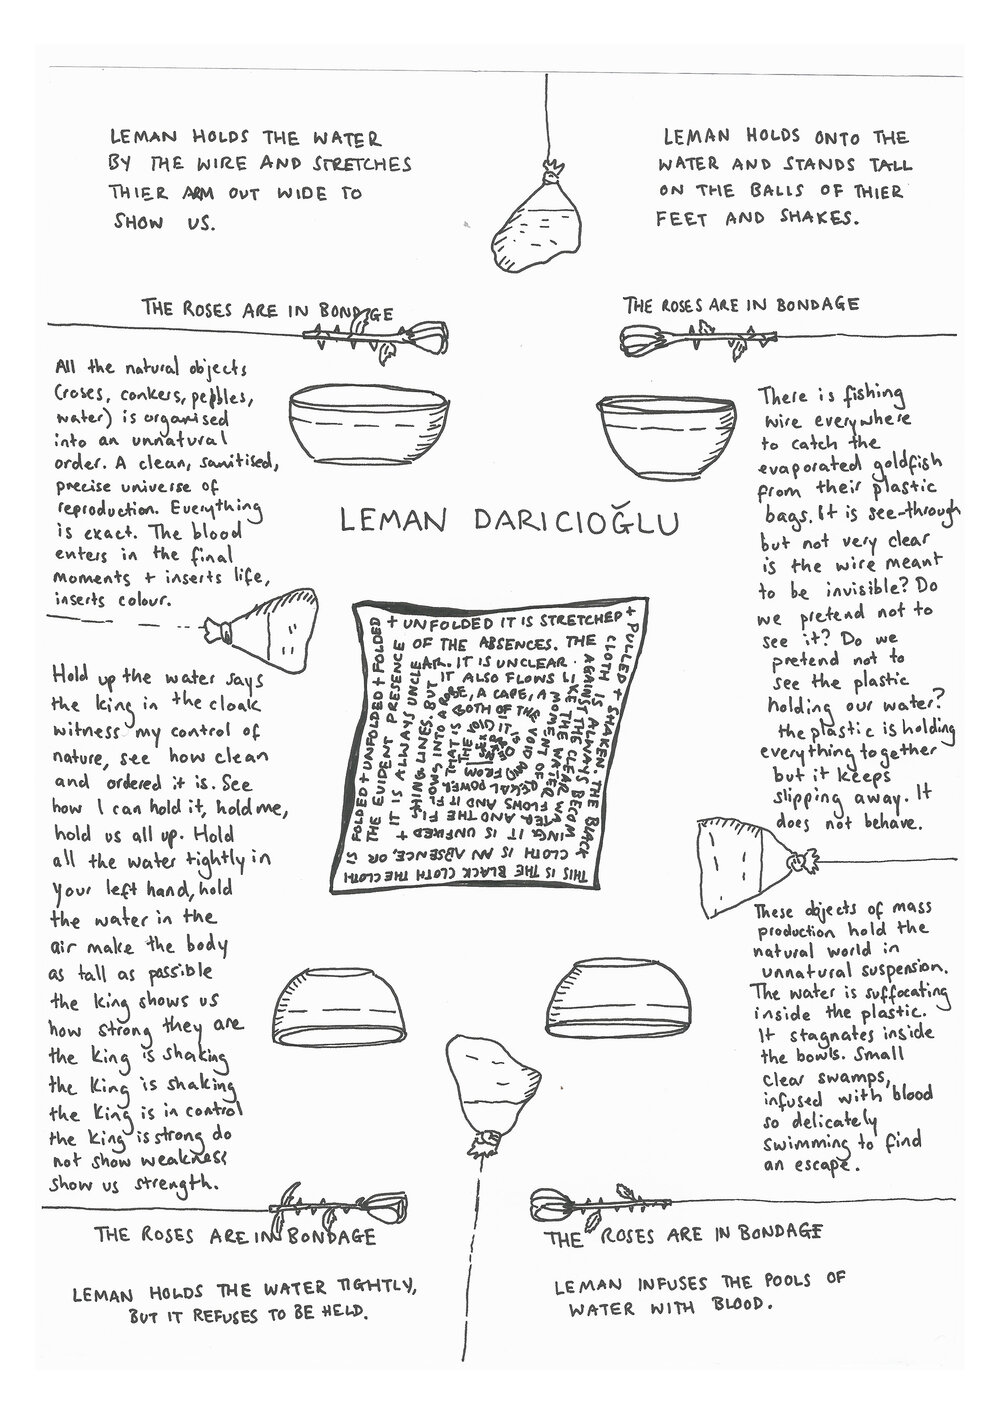 LEMAN HOLDS THE WATER
BY THE WIRE AND STRETCHES
THIER ARM OUT WIDE TO
SHOW US.
LEMAN HOLDS ONTO THE
WATER AND STANDS TALL
ON THE BALLS OF THIER
FEET AND SHAKES.
THE ROSES ARE IN BONDAGE
THE ROSES ARE IN BONDAGE
All the natural objects
(roses, conkers, pebbles,
water) is organised
into an unnatural
order. A clean, sanitised,
precise universe of
reproduction. Everything
is exact. The blood
enters in the final
moments + inserts life,
inserts colour.
There is fishing
wire everywhere
to catch the
evaporated goldfish
from their plastic
bags. It is see-through
but not very clear
is the wire meant
to be invisible? Do
we pretend not to
see it? Do we
pretend not to
see the plastic
holding our water?
the plastic is holding
everything together
but it keeps
slipping away. It
does not behave.
LEMAN DARICIOĞLU
THIS IS THE BLACK CLOTH THE CLOTH
IS FOLDED + UNFOLDED + FOLDED
+ UNFOLDED IT IS STRETCHED +
PULLED + SHAKEN. THE BLACK
CLOTH IS AN ABSENCE, OR,
THE EVIDENT PRESENCE
OF THE ABSENCES. THE
CLOTH IS ALWAYS BECOM
ING IT IS UNFIXED +
IT IS ALWAYS UNCLE
AR. IT IS UNCLEAR
AGAINST THE CLEAR WA
TER AND THE FI
SHING LINES. BUT
IT ALSO FLOWS LI
KE THE WATER
FLOWS AND IT FL
OWS INTO A ROBE, A CAPE, A
MOMENT OF
REGAL POWER
THAT IS BOTH OF THE
VOID AND
FROM THE VOID
Hold up the water says
the king in the cloak
witness my control of
nature, see how clean
and ordered it is. See
how I can hold it, hold me,
hold us all up. Hold
all the water tightly in
your left hand, hold
the water in the
air make the body
as tall as possible
the king shows us
how strong they are
the king is shaking
the king is shaking
the king is in control
the king is strong do
not show weakness
show us strength.
These objects of mass
production hold the
natural world in
unnatural suspension.
The water is suffocating
inside the plastic.
It stagnates inside
the bowls. Small
clear swamps,
infused with blood
so delicately
swimming to find
an escape.
THE ROSES ARE IN BONDAGE
THE ROSES ARE IN BONDAGE
LEMAN HOLDS THE WATER TIGHTLY,
BUT IT REFUSES TO BE HELD.
LEMAN INFUSES THE POOLS OF
WATER WITH BLOOD.